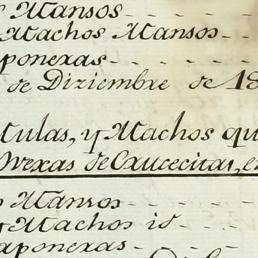 Mansos
Machos Mansos
aponexas
de Diziembre de 18
Mulas, y Machos qu
Ovexas de Caucecitas, e
Mansos
y Machos id
aponexas